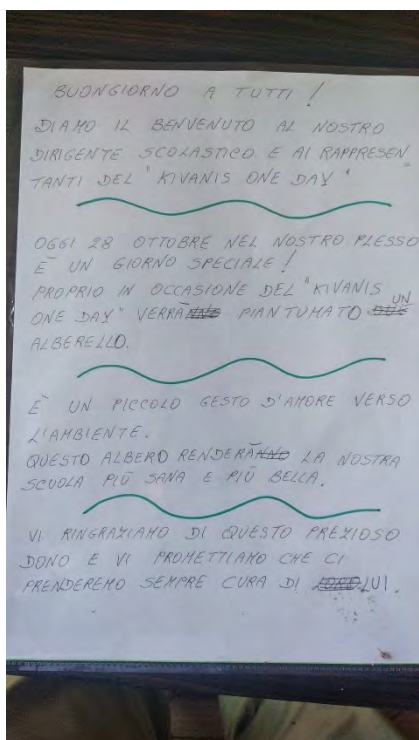 BUONGIORNO A TUTTI!
DIAMO IL BENVENUTO AL NOSTRO
DIRIGENTE SCOLASTICO E AI RAPPRESEN
TANTI DEL "KIVANIS ONE DAY"
OGGI 28 OTTOBRE NEL NOSTRO PLESSO
È UN GIORNO SPECIALE!
PROPRIO IN OCCASIONE DEL "KIVANIS
ONE DAY" VERRÀ PIANTUMATO UN
ALBERELLO.
È UN PICCOLO GESTO D'AMORE VERSO
L'AMBIENTE.
QUESTO ALBERO RENDERÀ LA NOSTRA
SCUOLA PIÙ SANA E PIÙ BELLA.
VI RINGRAZIAMO DI QUESTO PREZIOSO
DONO E VI PROMETTIAMO CHE CI
PRENDEREMO SEMPRE CURA DI LUI.